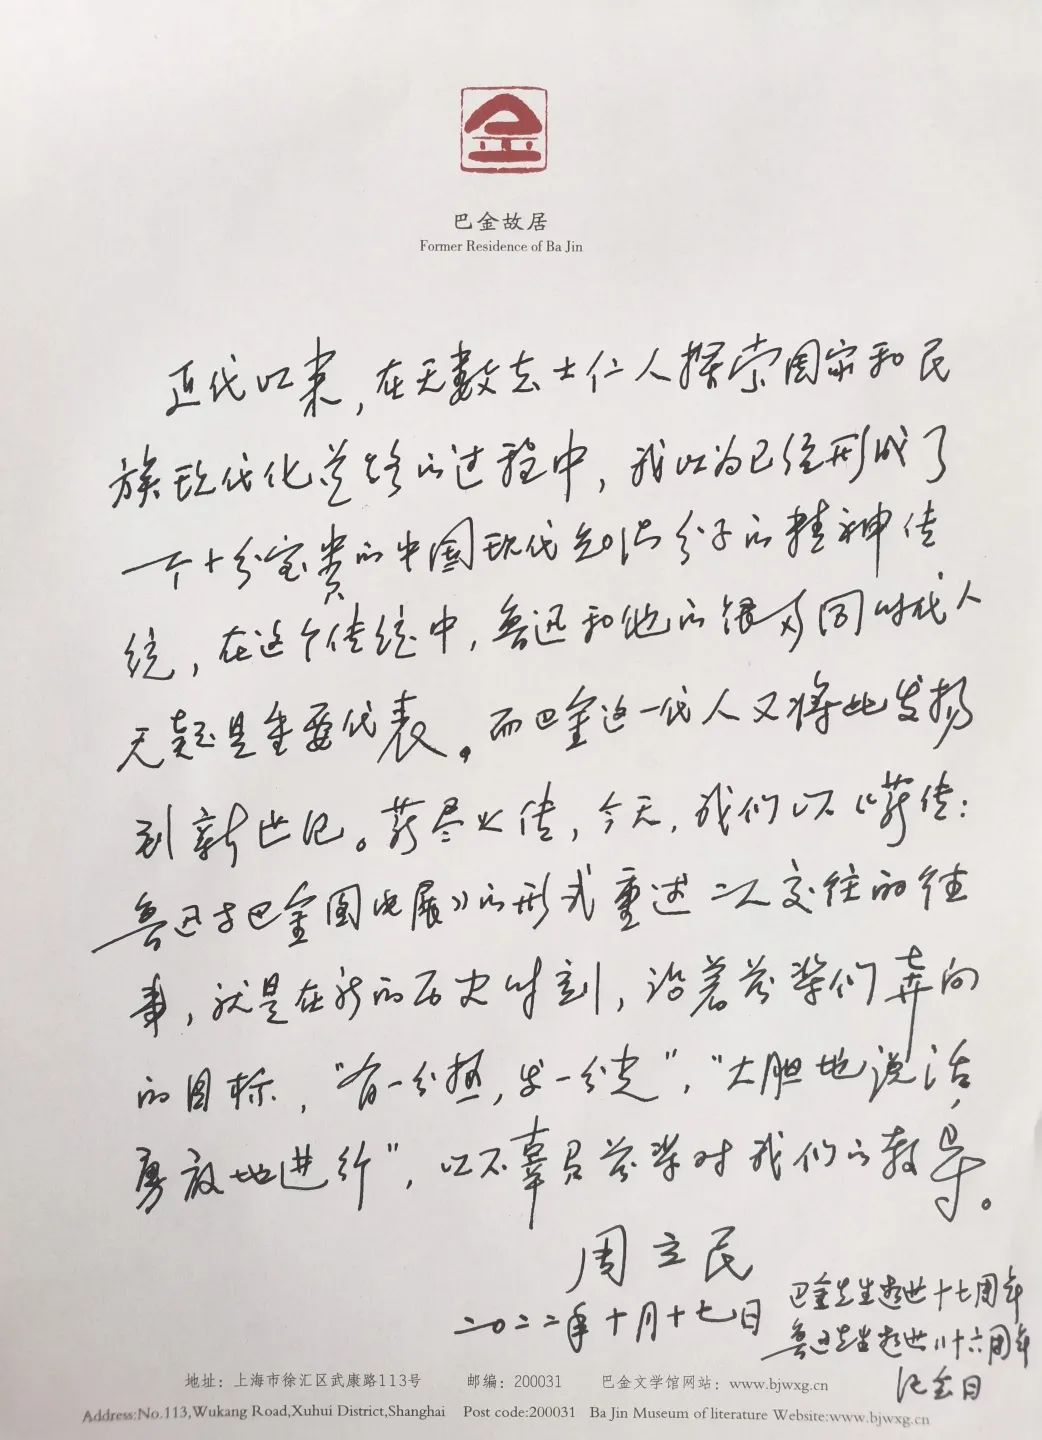 金
巴金故居
Former Residence of Ba Jin
近代以来，在无数志士仁人探索国家和民
族现代化道路的过程中，我以为已经形成了
一个十分宝贵的中国现代知识分子的精神传
统，在这个传统中，鲁迅和他的很多同时代人
无疑是重要代表。而巴金这一代人又将此发扬
到新世纪。薪尽火传，今天，我们以《薪传：
鲁迅与巴金图片展》的形式重述二人交往的往
事，就是在新的历史时刻，沿着前辈们奔向
的目标，“有一分热，发一分光”，“大胆地说话，
勇敢地进行”，以不辜负前辈对我们的教导。
周立民
二〇二二年十月十七日
巴金先生逝世十七周年
鲁迅先生逝世八十六周年
纪念日
地址：上海市徐汇区武康路113号 邮编：200031 巴金文学馆网站：www.bjwxg.cn
Address:No.113,Wukang Road,Xuhui District,Shanghai Post code:200031 Ba Jin Museum of literature Website:www.bjwxg.cn